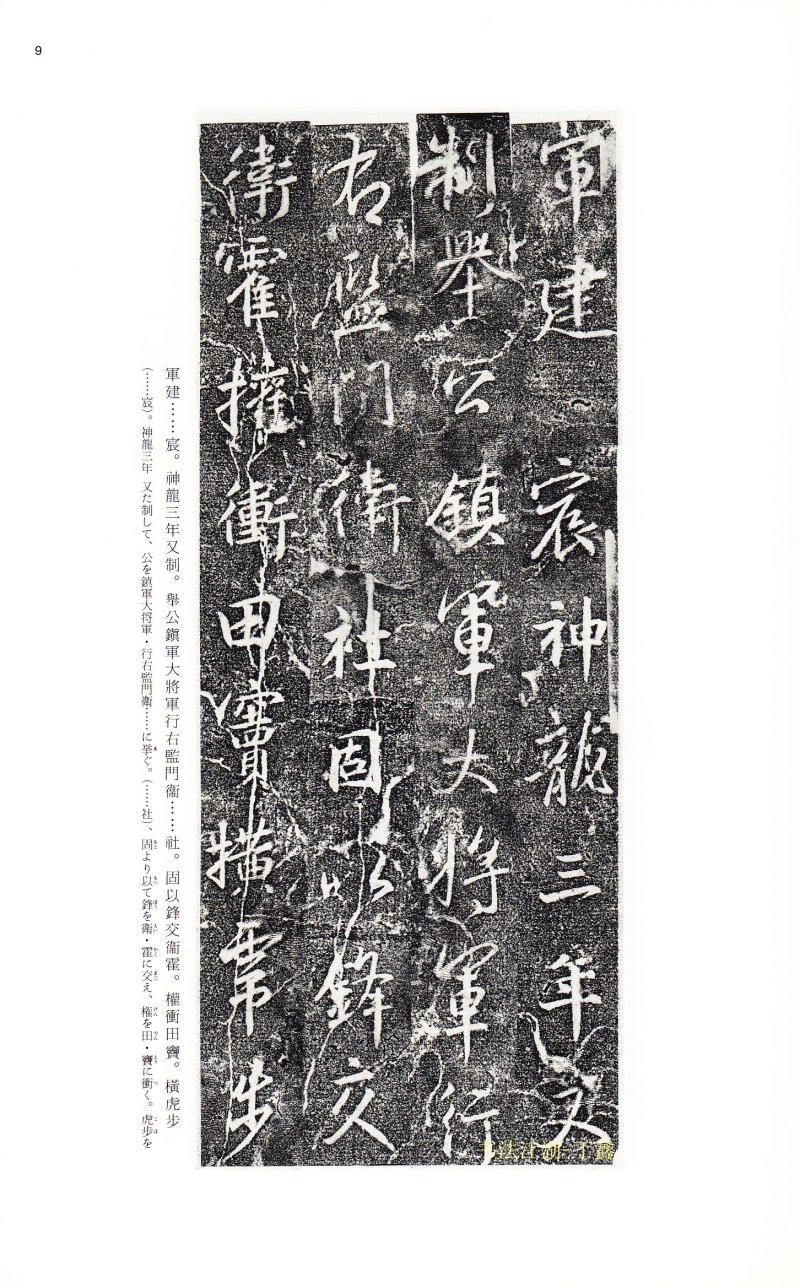 9
軍建宸神龍三年又
制舉公鎮軍大將軍行
右監門衛社固以鋒交
衛霍權衝田竇橫虎步
軍建……宸。神龍三年又制。舉公鎭軍大將軍行右監門衞……社。固以鋒交衞霍。權衝田竇。橫虎步
(……宸)。神龍三年 又た制して、公を鎮軍大将軍・行右監門衛……に挙ぐ。(……社)、固より以て鋒を衛・霍に交え、権を田・竇に衝く。虎歩を